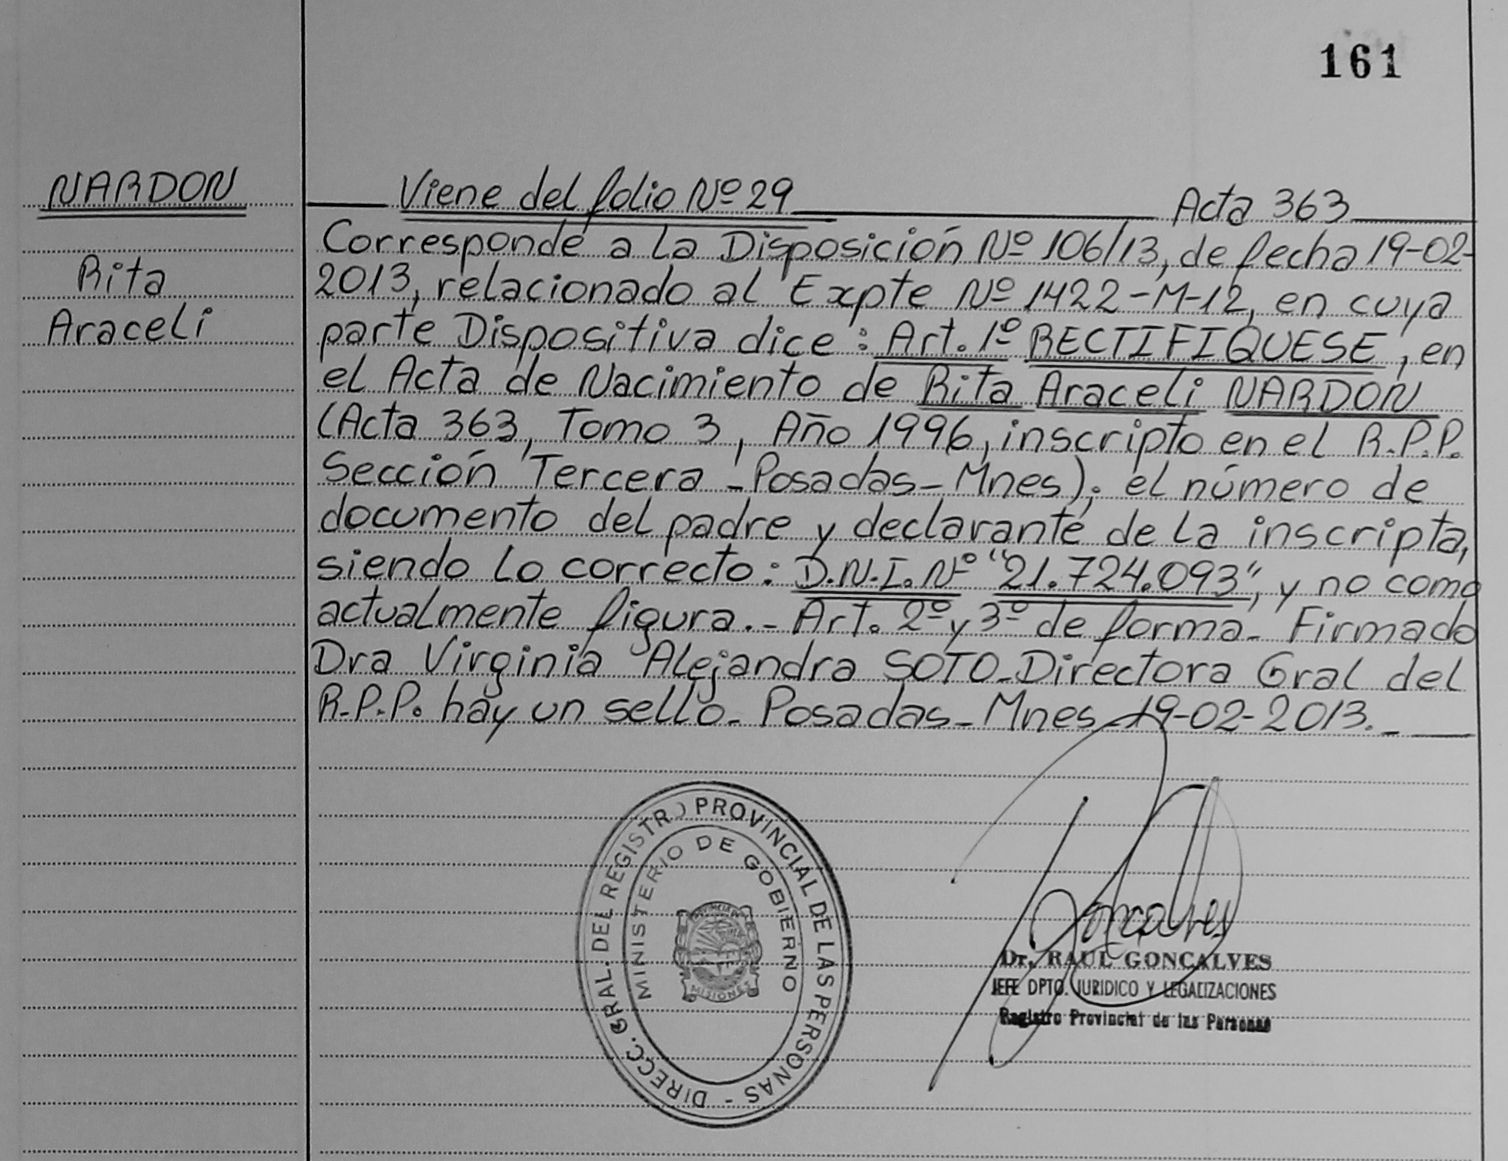 161
NARDON
Rita
Araceli
Viene del folio Nº 29 Acta 363
Corresponde a la Disposición Nº 106/13, de fecha 19-02-
2013, relacionado al Expte Nº 1422-M-12, en cuya
parte Dispositiva dice: Art. 1º RECTIFIQUESE, en
el Acta de Nacimiento de Rita Araceli NARDON
(Acta 363, Tomo 3, Año 1996, inscripto en el R.P.P.
Sección Tercera -Posadas-Mnes); el número de
documento del padre y declarante de la inscripta,
siendo lo correcto: D.N.I. Nº "21.724.093", y no como
actualmente figura.- Art. 2º y 3º de forma- Firmado
Dra Virginia Alejandra SOTO-Directora Gral del
R.P.P. hay un sello- Posadas-Mnes 19-02-2013.-
DIRECC. GRAL. DEL REGISTRO PROVINCIAL DE LAS PERSONAS -
MINISTERIO DE GOBIERNO
PROVINCIA DE
MISIONES
Goncalves
Dr. RAUL GONCALVES
JEFE DPTO. JURIDICO Y LEGALIZACIONES
Registro Provincial de las Personas